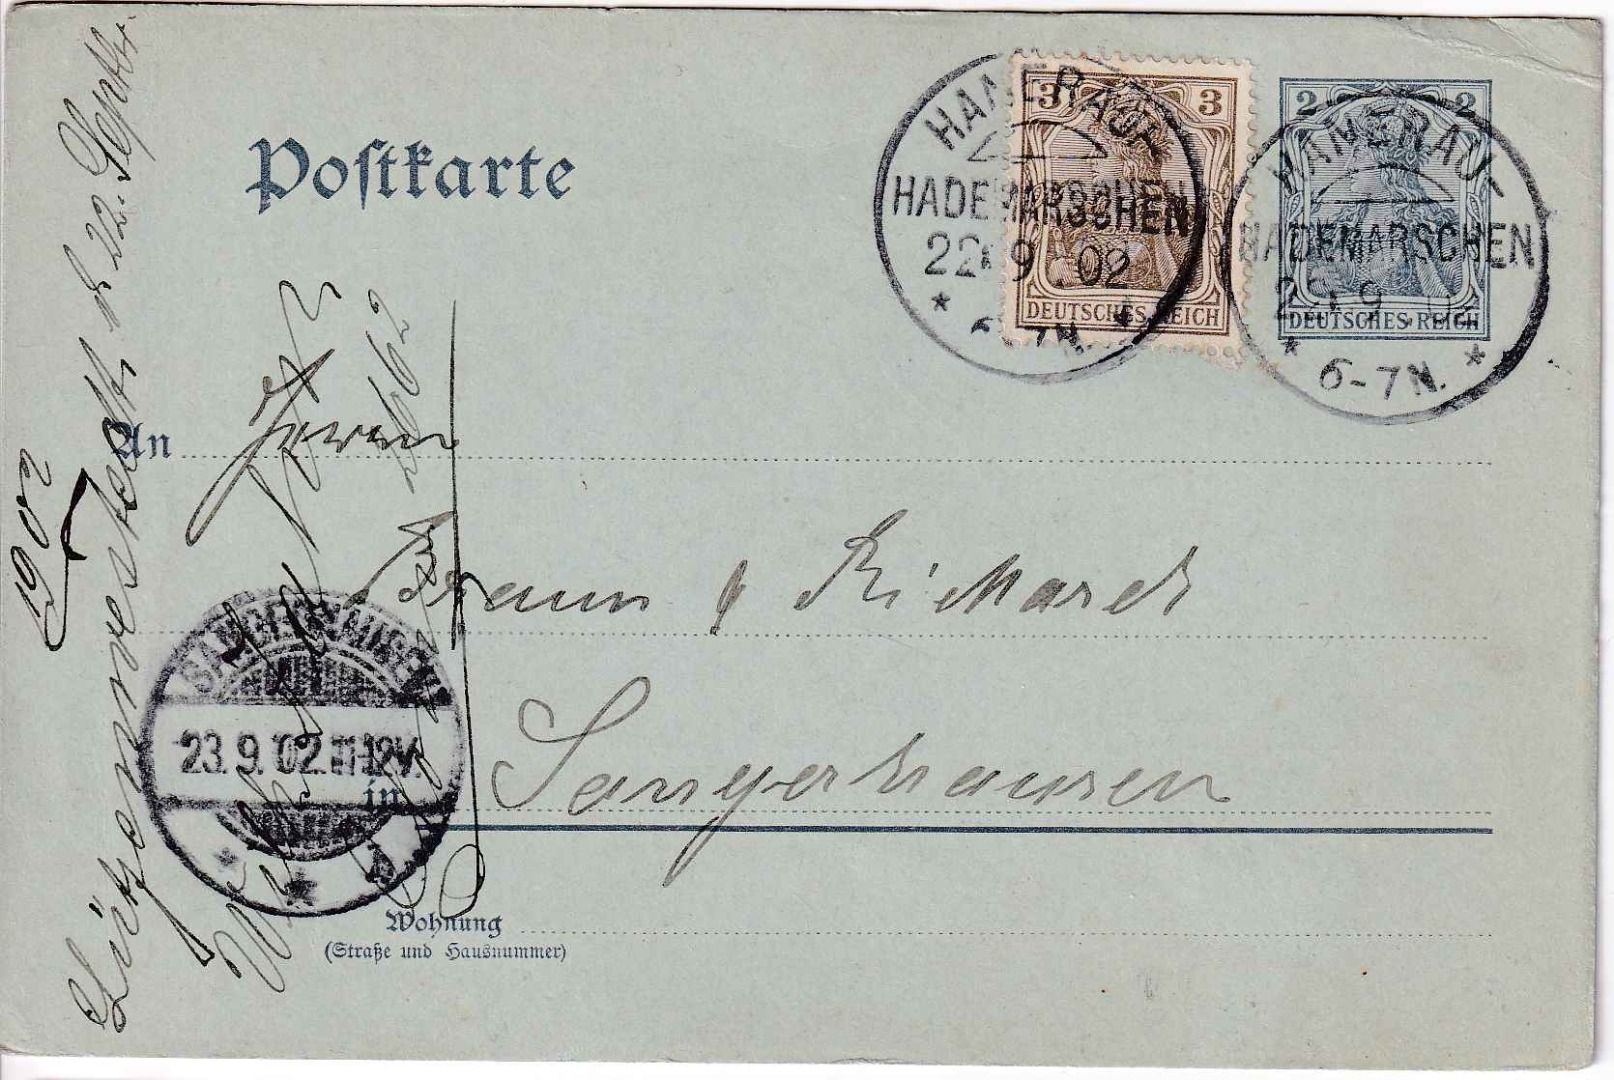 Postkarte
3 3
DEUTSCHES REICH
2 2
DEUTSCHES REICH
HANERAU-
HADEMARSCHEN
22 9 02
6-7N.
HANERAU-
HADEMARSCHEN
22 9 02
6-7N.
An Herrn
Braun & Richard
in Sangerhausen
Wohnung
(Straße und Hausnummer)
SANGERHAUSEN
23.9.02.11-12V.
Lütjenwestedt d 22. Septbr.
1902